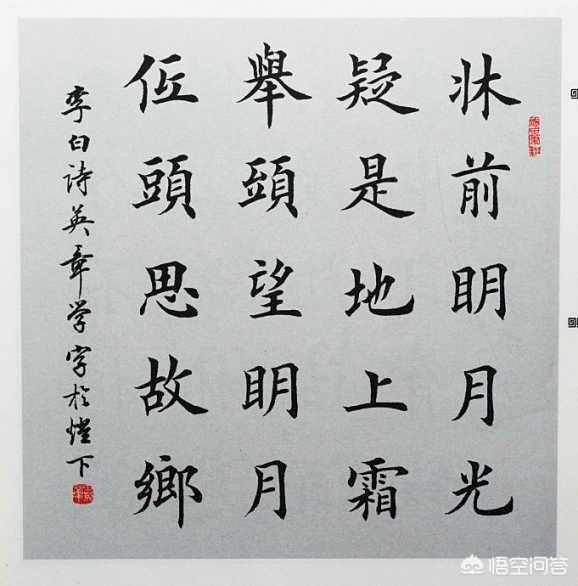 牀前明月光
疑是地上霜
舉頭望明月
低頭思故鄉
李白詩英章学字於燈下
悟空问答